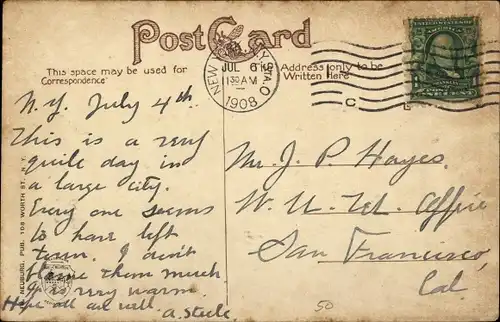 Post Card
This space may be used for
Correspondence
Address only to be
Written Here
NEW YORK, N.Y. STA. O
JUL 6
130 AM
1908
C
N.Y. July 4th
This is a very
quite day in
a large city.
Every one seems
to have left
town. I don't
blame them much
It is very warm.
Hope all are well.
A. Steele
Mr. J. P. Hayes.
W. U. Tel. Office
San Francisco,
Cal
NEUBURG, PUB. 108 WORTH ST. N.Y.
50